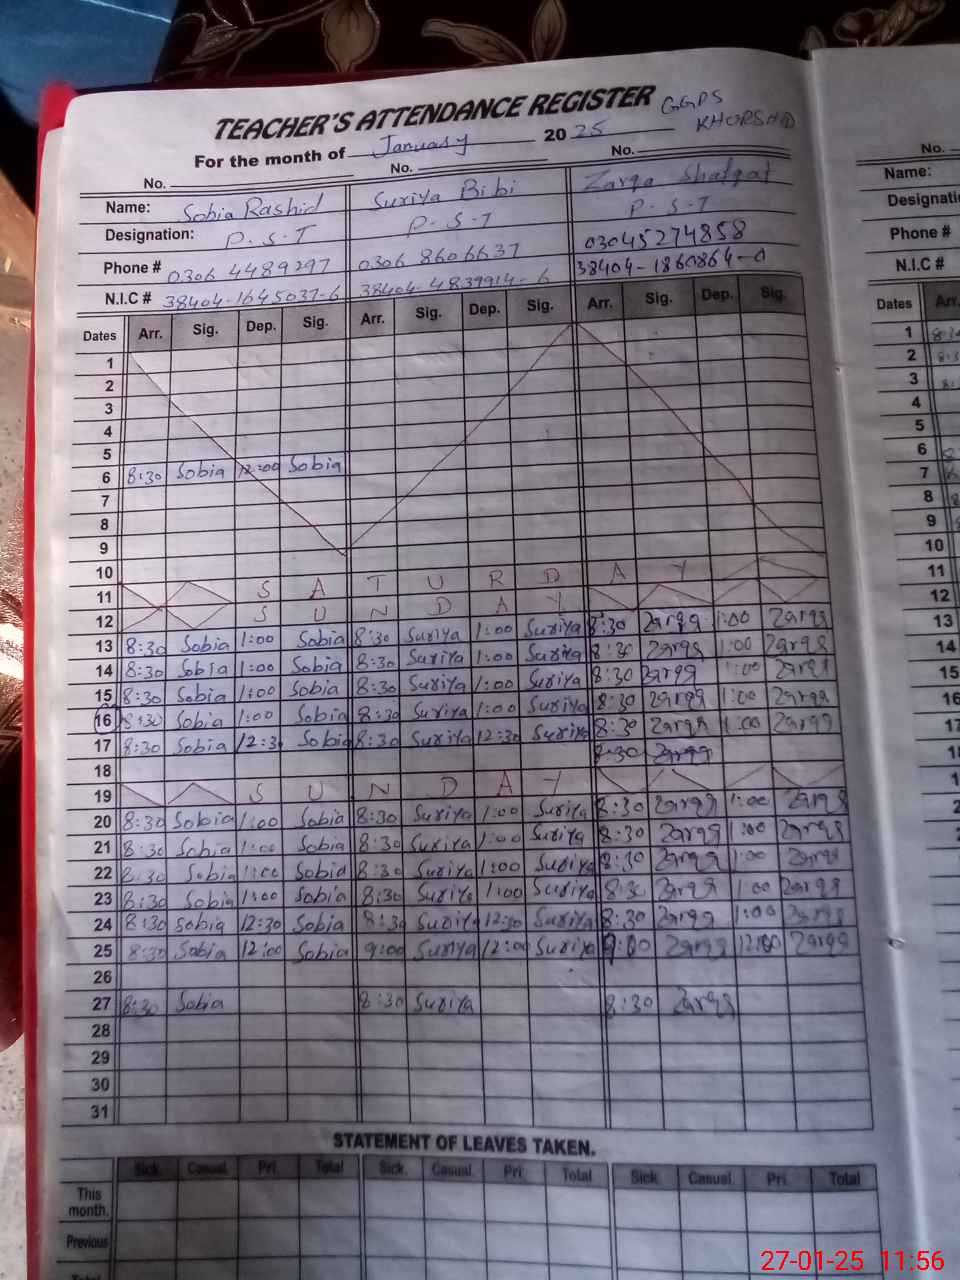 TEACHER'S ATTENDANCE REGISTER GGPS
For the month of January 2025 KHURSHID
No. No. No.
Name: Sobia Rashid Suriya Bibi Zarqa Shafqat
Designation: P.S.T P.S.T P.S.T
Phone # 0306 4489297 0306 8606637 03045274858
N.I.C # 38404-1645037-6 38404-4839914-6 38404-1860864-0
Dates Arr. Sig. Dep. Sig. Arr. Sig. Dep. Sig. Arr. Sig. Dep. Sig.
1
2
3
4
5
6 8:30 Sobia 12:00 Sobia
7
8
9
10
11 S A T U R D A Y
12 S U N D A Y
13 8:30 Sobia 1:00 Sobia 8:30 Suriya 1:00 Suriya 8:30 Zarqa 1:00 Zarqa
14 8:30 Sobia 1:00 Sobia 8:30 Suriya 1:00 Suriya 8:30 Zarqa 1:00 Zarqa
15 8:30 Sobia 1:00 Sobia 8:30 Suriya 1:00 Suriya 8:30 Zarqa 1:00 Zarqa
16 8:30 Sobia 1:00 Sobia 8:30 Suriya 1:00 Suriya 8:30 Zarqa 1:00 Zarqa
17 8:30 Sobia 12:30 Sobia 8:30 Suriya 12:30 Suriya 8:30 Zarqa 1:00 Zarqa
18 8:30 Zarqa
19 S U N D A Y
20 8:30 Sobia 1:00 Sobia 8:30 Suriya 1:00 Suriya 8:30 Zarqa 1:00 Zarqa
21 8:30 Sobia 1:00 Sobia 8:30 Suriya 1:00 Suriya 8:30 Zarqa 1:00 Zarqa
22 8:30 Sobia 1:00 Sobia 8:30 Suriya 1:00 Suriya 8:30 Zarqa 1:00 Zarqa
23 8:30 Sobia 1:00 Sobia 8:30 Suriya 1:00 Suriya 8:30 Zarqa 1:00 Zarqa
24 8:30 Sobia 12:30 Sobia 8:30 Suriya 12:30 Suriya 8:30 Zarqa 1:00 Zarqa
25 8:30 Sobia 12:00 Sobia 9:00 Suriya 12:00 Suriya 9:00 Zarqa 12:00 Zarqa
26
27 8:30 Sobia 8:30 Suriya 8:30 Zarqa
28
29
30
31
STATEMENT OF LEAVES TAKEN.
Sick. Casual. Pri. Total Sick. Casual. Pri. Total Sick. Casual. Pri. Total
This
month.
Previous
Total
No.
Name:
Phone #
N.I.C #
Dates Arr.
1
2
3
4
5
6
7
8
9
10
11
12
13
14
15
16
17
27-01-25 11:56